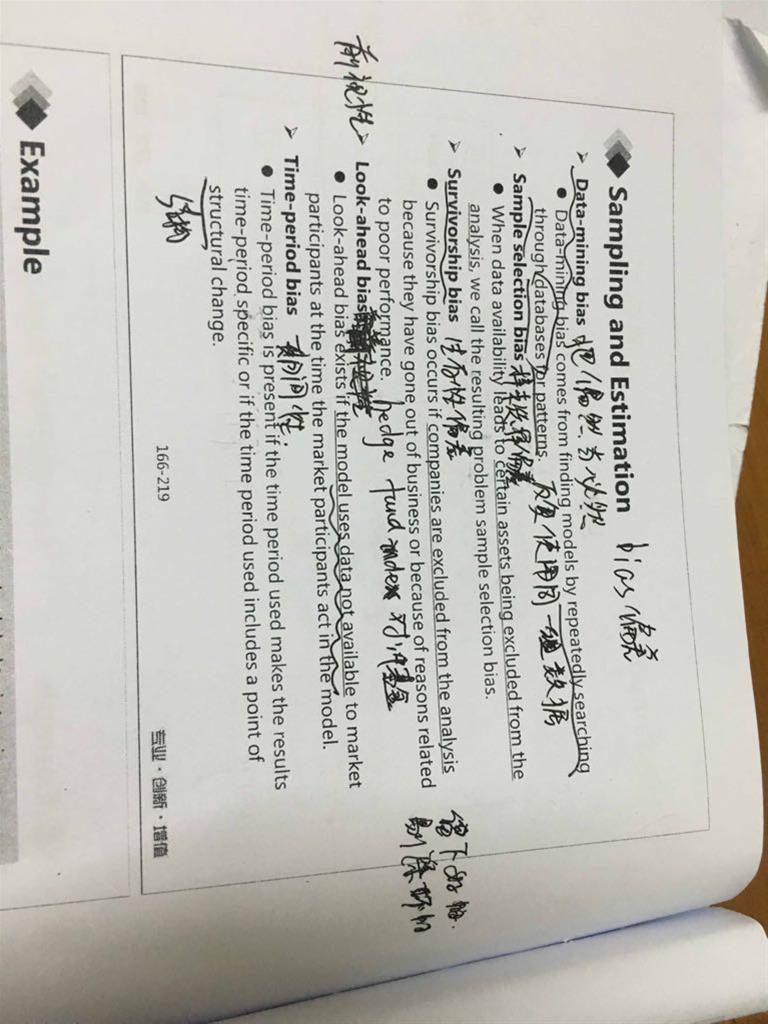 Sampling and Estimation bias 偏差
Data-mining bias 把偶然当必然
Data-mining bias comes from finding models by repeatedly searching
through databases for patterns. 反复使用同一组数据
Sample selection bias 样本选择偏差
When data availability leads to certain assets being excluded from the
analysis, we call the resulting problem sample selection bias.
Survivorship bias 生存性偏差
Survivorship bias occurs if companies are excluded from the analysis
because they have gone out of business or because of reasons related
to poor performance. hedge fund index 对冲基金
留下好的.
剔除坏的
前视性 Look-ahead bias
Look-ahead bias exists if the model uses data not available to market
participants at the time the market participants act in the model.
Time-period bias 期间性.
Time-period bias is present if the time period used makes the results
time-period specific or if the time period used includes a point of
structural change.
结构
166-219
专业·创新·增值
Example